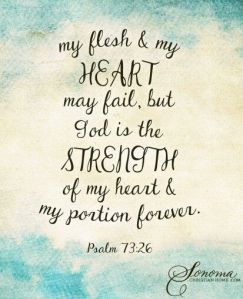 my flesh & my
HEART
may fail, but
God is the
STRENGTH
of my heart &
my portion forever.
Psalm 73:26
Sonoma
CHRISTIAN HOME.COM